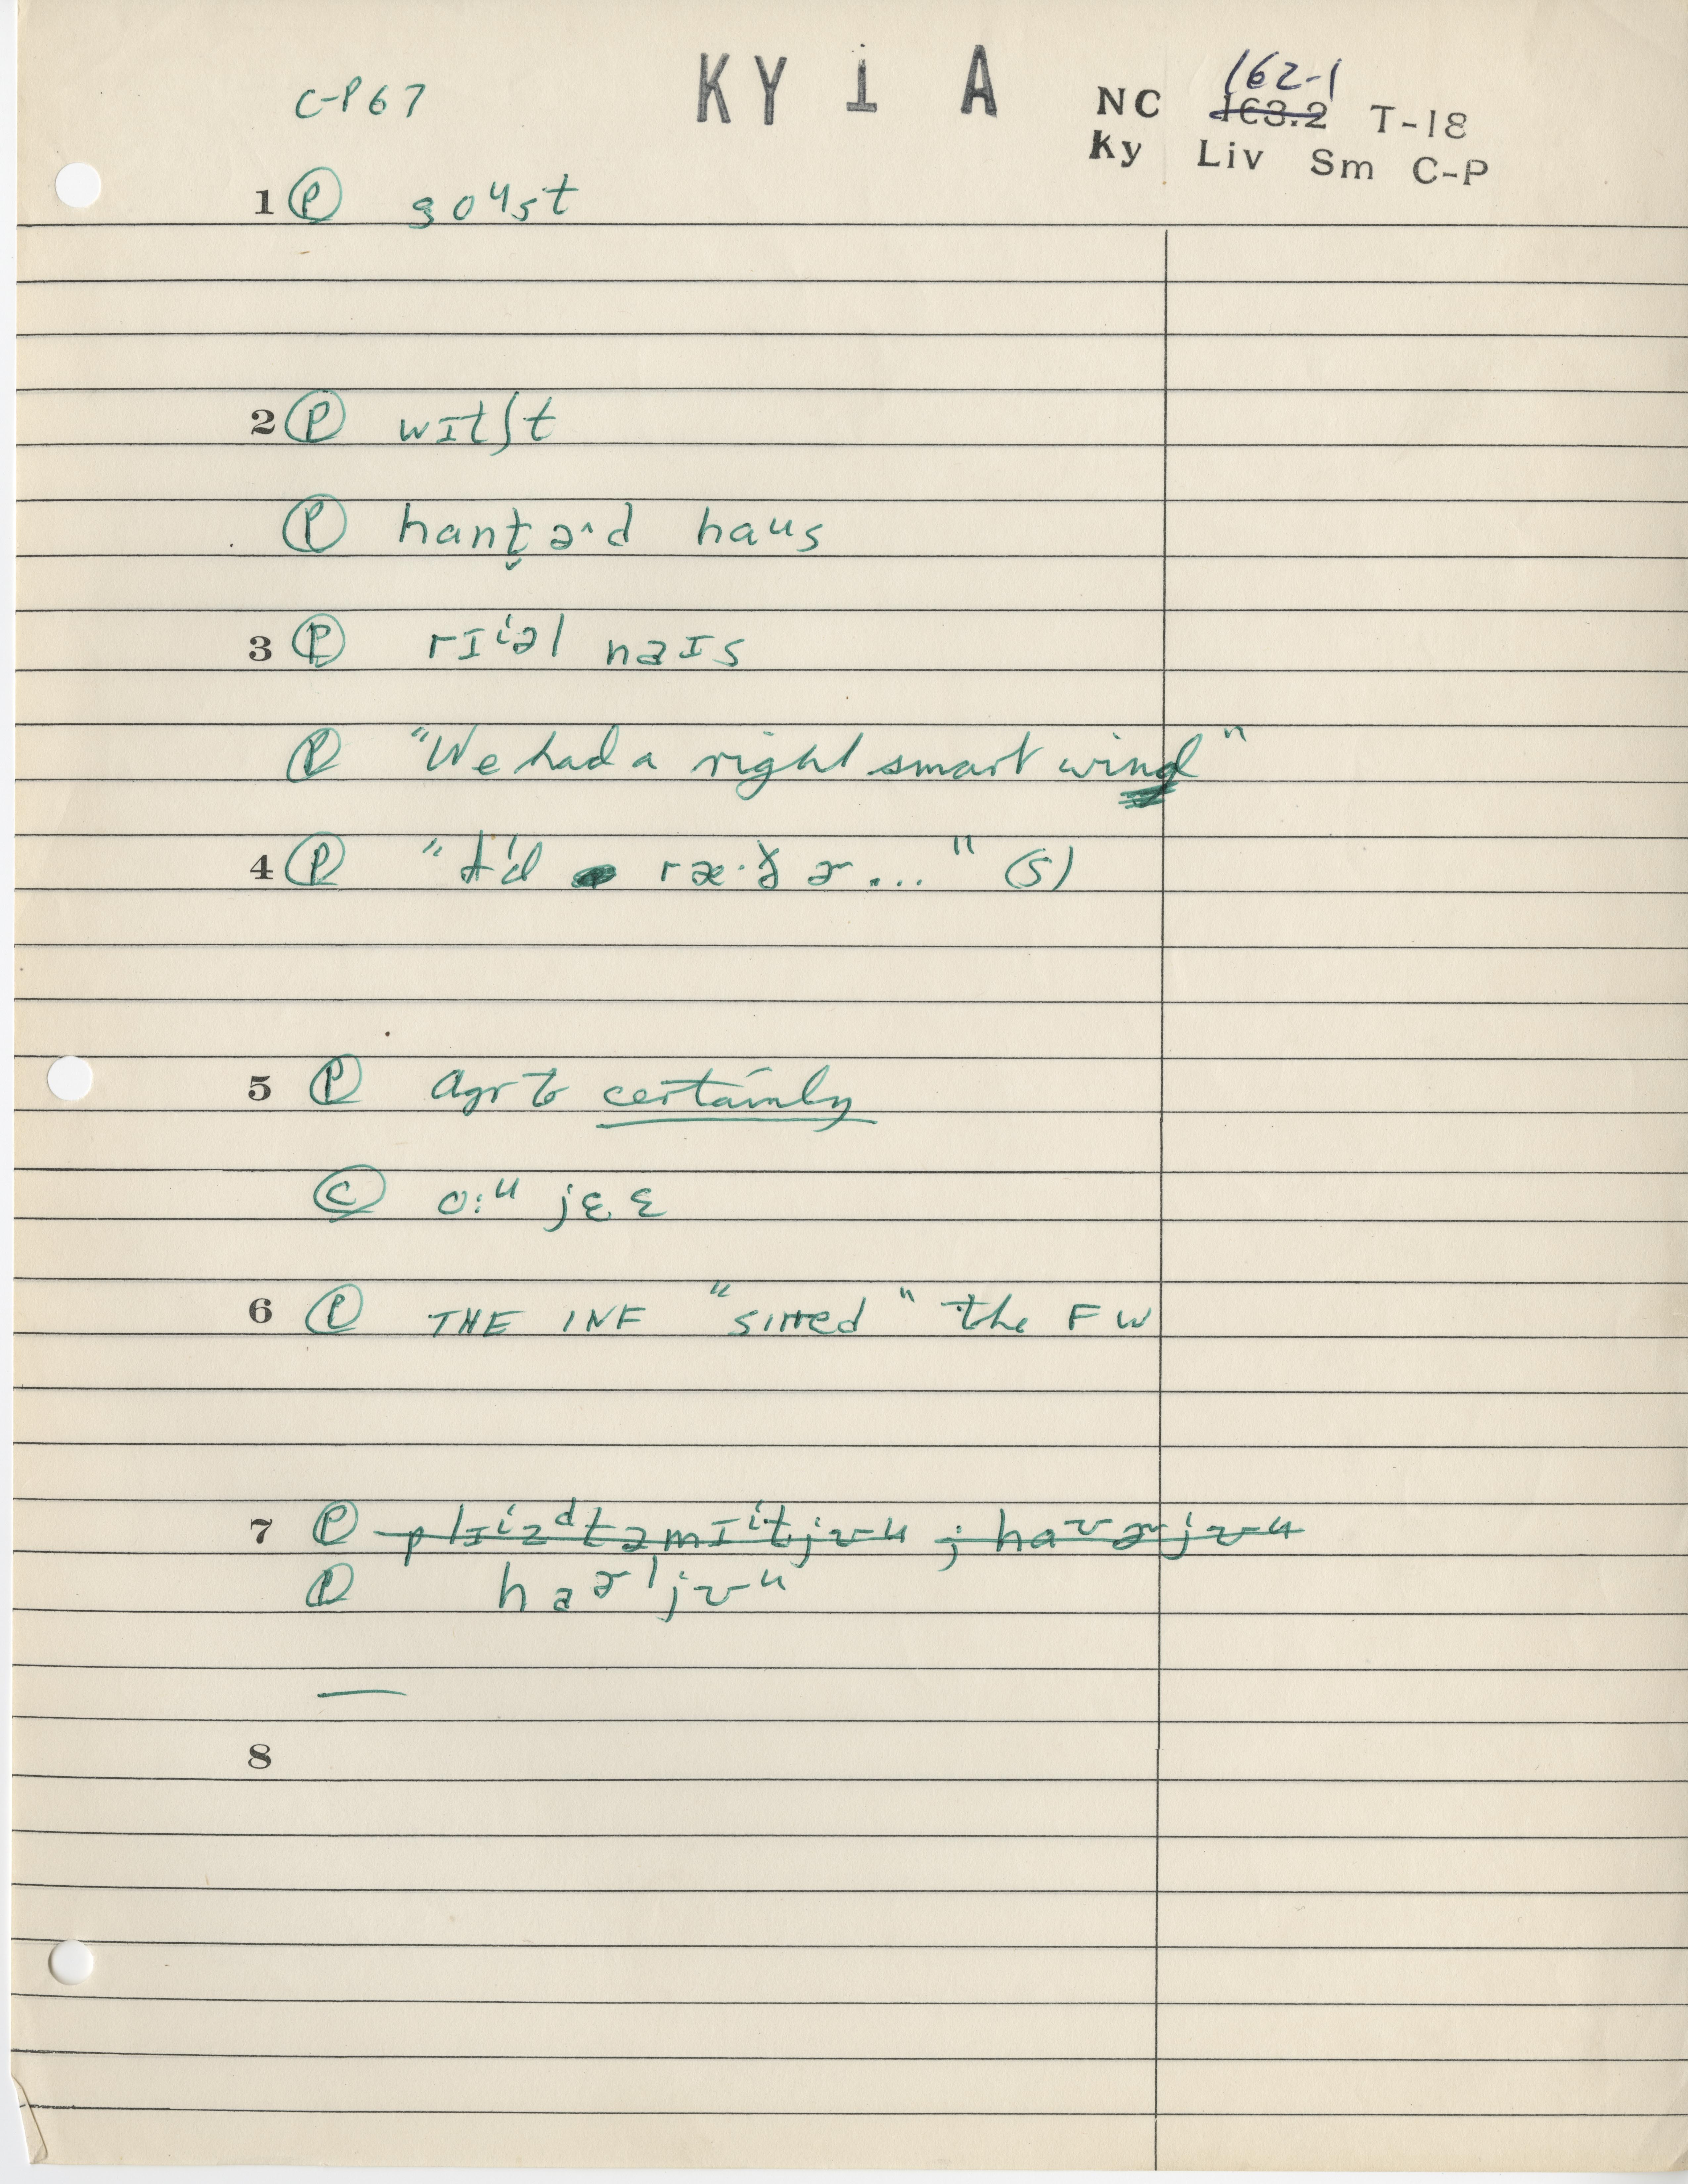 C-P67 KY 1 A NC 162-1 163.2 T-18
Ky Liv Sm C-P
1 Ⓟ goᵘst
2 Ⓟ wɪtʃt
Ⓟ hant̬ɚd haus
3 Ⓟ rɪⁱəl naɪs
Ⓟ "We had a right smart wind"
4 Ⓟ "I'd ræ·ðɚ..." (s)
5 Ⓟ agr to certainly
Ⓒ o:ᵘ jɛɛ
6 Ⓟ THE INF "sirred" the FW
7 Ⓟ plɪⁱzᵈtəmɪⁱtjʊu ; haʊɚjʊu
Ⓟ haɚˈjʊᵘ
8